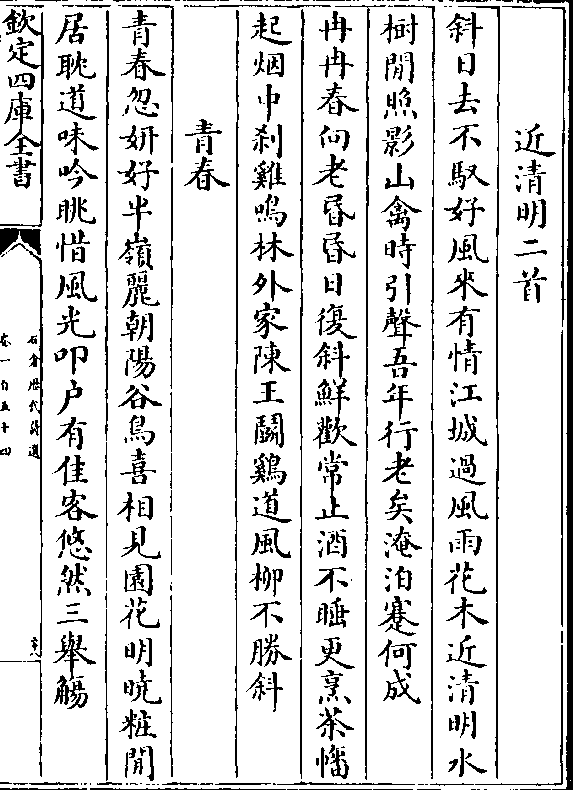 近清明二首
斜日去不馭好風來有情江城過風雨花木近清明水
樹閒照影山禽時引聲吾年行老矣淹泊蹇何成
冉冉春向老昏昏日復斜鮮歡常止酒不睡更烹茶幡
起烟中刹雞鳴林外家陳王鬭鷄道風柳不勝斜
青春
青春忽妍好半嶺麗朝陽谷鳥喜相見園花明曉粧閒
居耽道味吟眺惜風光叩户有佳客悠然三舉觴
欽定四庫全書
石倉歴代詩選
卷一百五十四